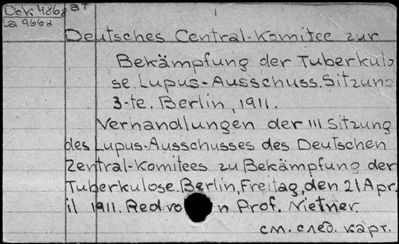 Dck 4868 a+
Ca 9668
Deutsches Central-Komitee zur
Bekämpfung der Tuberkulo
se. Lupus-Ausschuss. Sitzung
3-te. Berlin, 1911.
Verhandlungen der III Sitzung
des Lupus-Ausschusses des Deutschen
Zentral-Komitees zu Bekämpfung der
Tuberkulose. Berlin, Freitag, den 21 Apr.
il 1911. Red von Prof. Nietner.
см. след. карт.